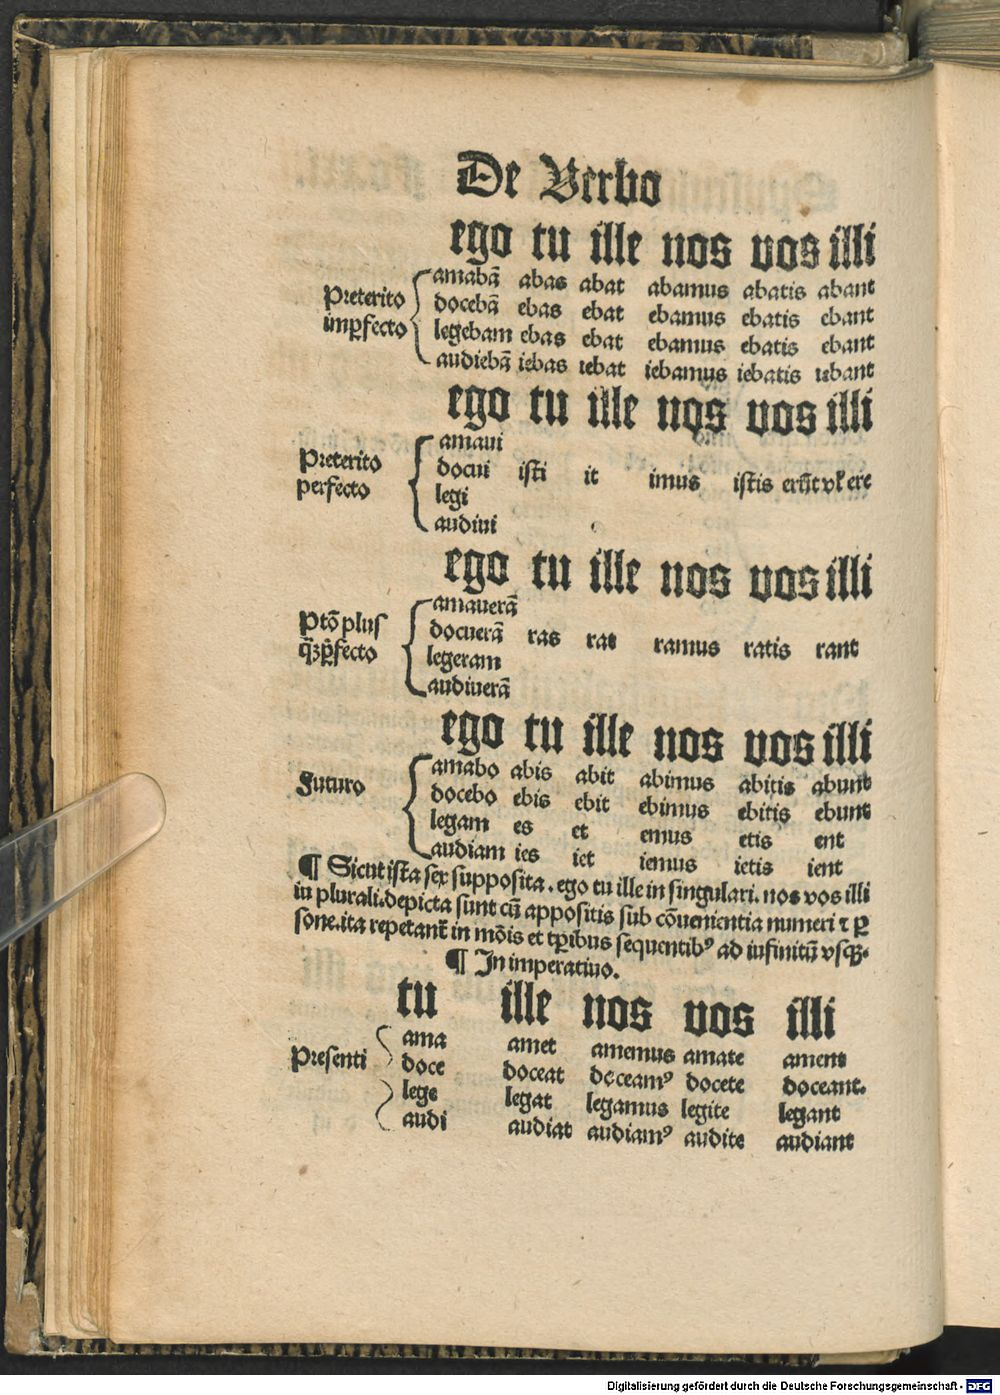 De Verbo
ego tu ille nos vos illi
amabā abas abat abamus abatis abant
Preterito docebā ebas ebat ebamus ebatis ebant
imꝑfecto legebam ebas ebat ebamus ebatis ebant
audiebā iebas iebat iebamus iebatis iebant
ego tu ille nos vos illi
amaui
Preterito docui isti it imus istis erūt vl' ere
perfecto legi
audiui
ego tu ille nos vos illi
amauerā
Ptō plus docuerā ras rat ramus ratis rant
q̄ꝫꝑfecto legeram
audiuerā
ego tu ille nos vos illi
amabo abis abit abimus abitis abunt
Futuro docebo ebis ebit ebimus ebitis ebunt
legam es et emus etis ent
audiam ies iet iemus ietis ient
¶ Sicut ista sex supposita . ego tu ille in singulari . nos vos illi
in plurali . depicta sunt cū appositis sub cōuenientia numeri ⁊ ꝑ
sone . ita repetant᷑ in mōis et tꝑibus sequentibꝰ ad infinitū vsqꝫ .
¶ In imperatiuo .
tu ille nos vos illi
ama amet amemus amate ament
Presenti doce doceat doceamꝰ docete doceant .
lege legat legamus legite legant
audi audiat audiamꝰ audite audiant
Digitalisierung gefördert durch die Deutsche Forschungsgemeinschaft - DFG